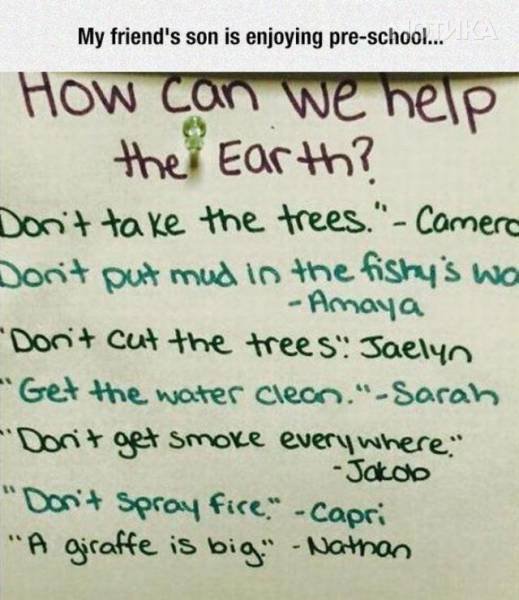 My friend's son is enjoying pre-school...
How can we help
the Earth?
Don't take the trees." - Camero
Don't put mud in the fishy's wa
- Amaya
"Don't cut the trees". Jaelyn
"Get the water clean." - Sarah
"Don't get smoke everywhere."
- Jakob
"Don't spray fire." - Capri
"A giraffe is big." - Nathan